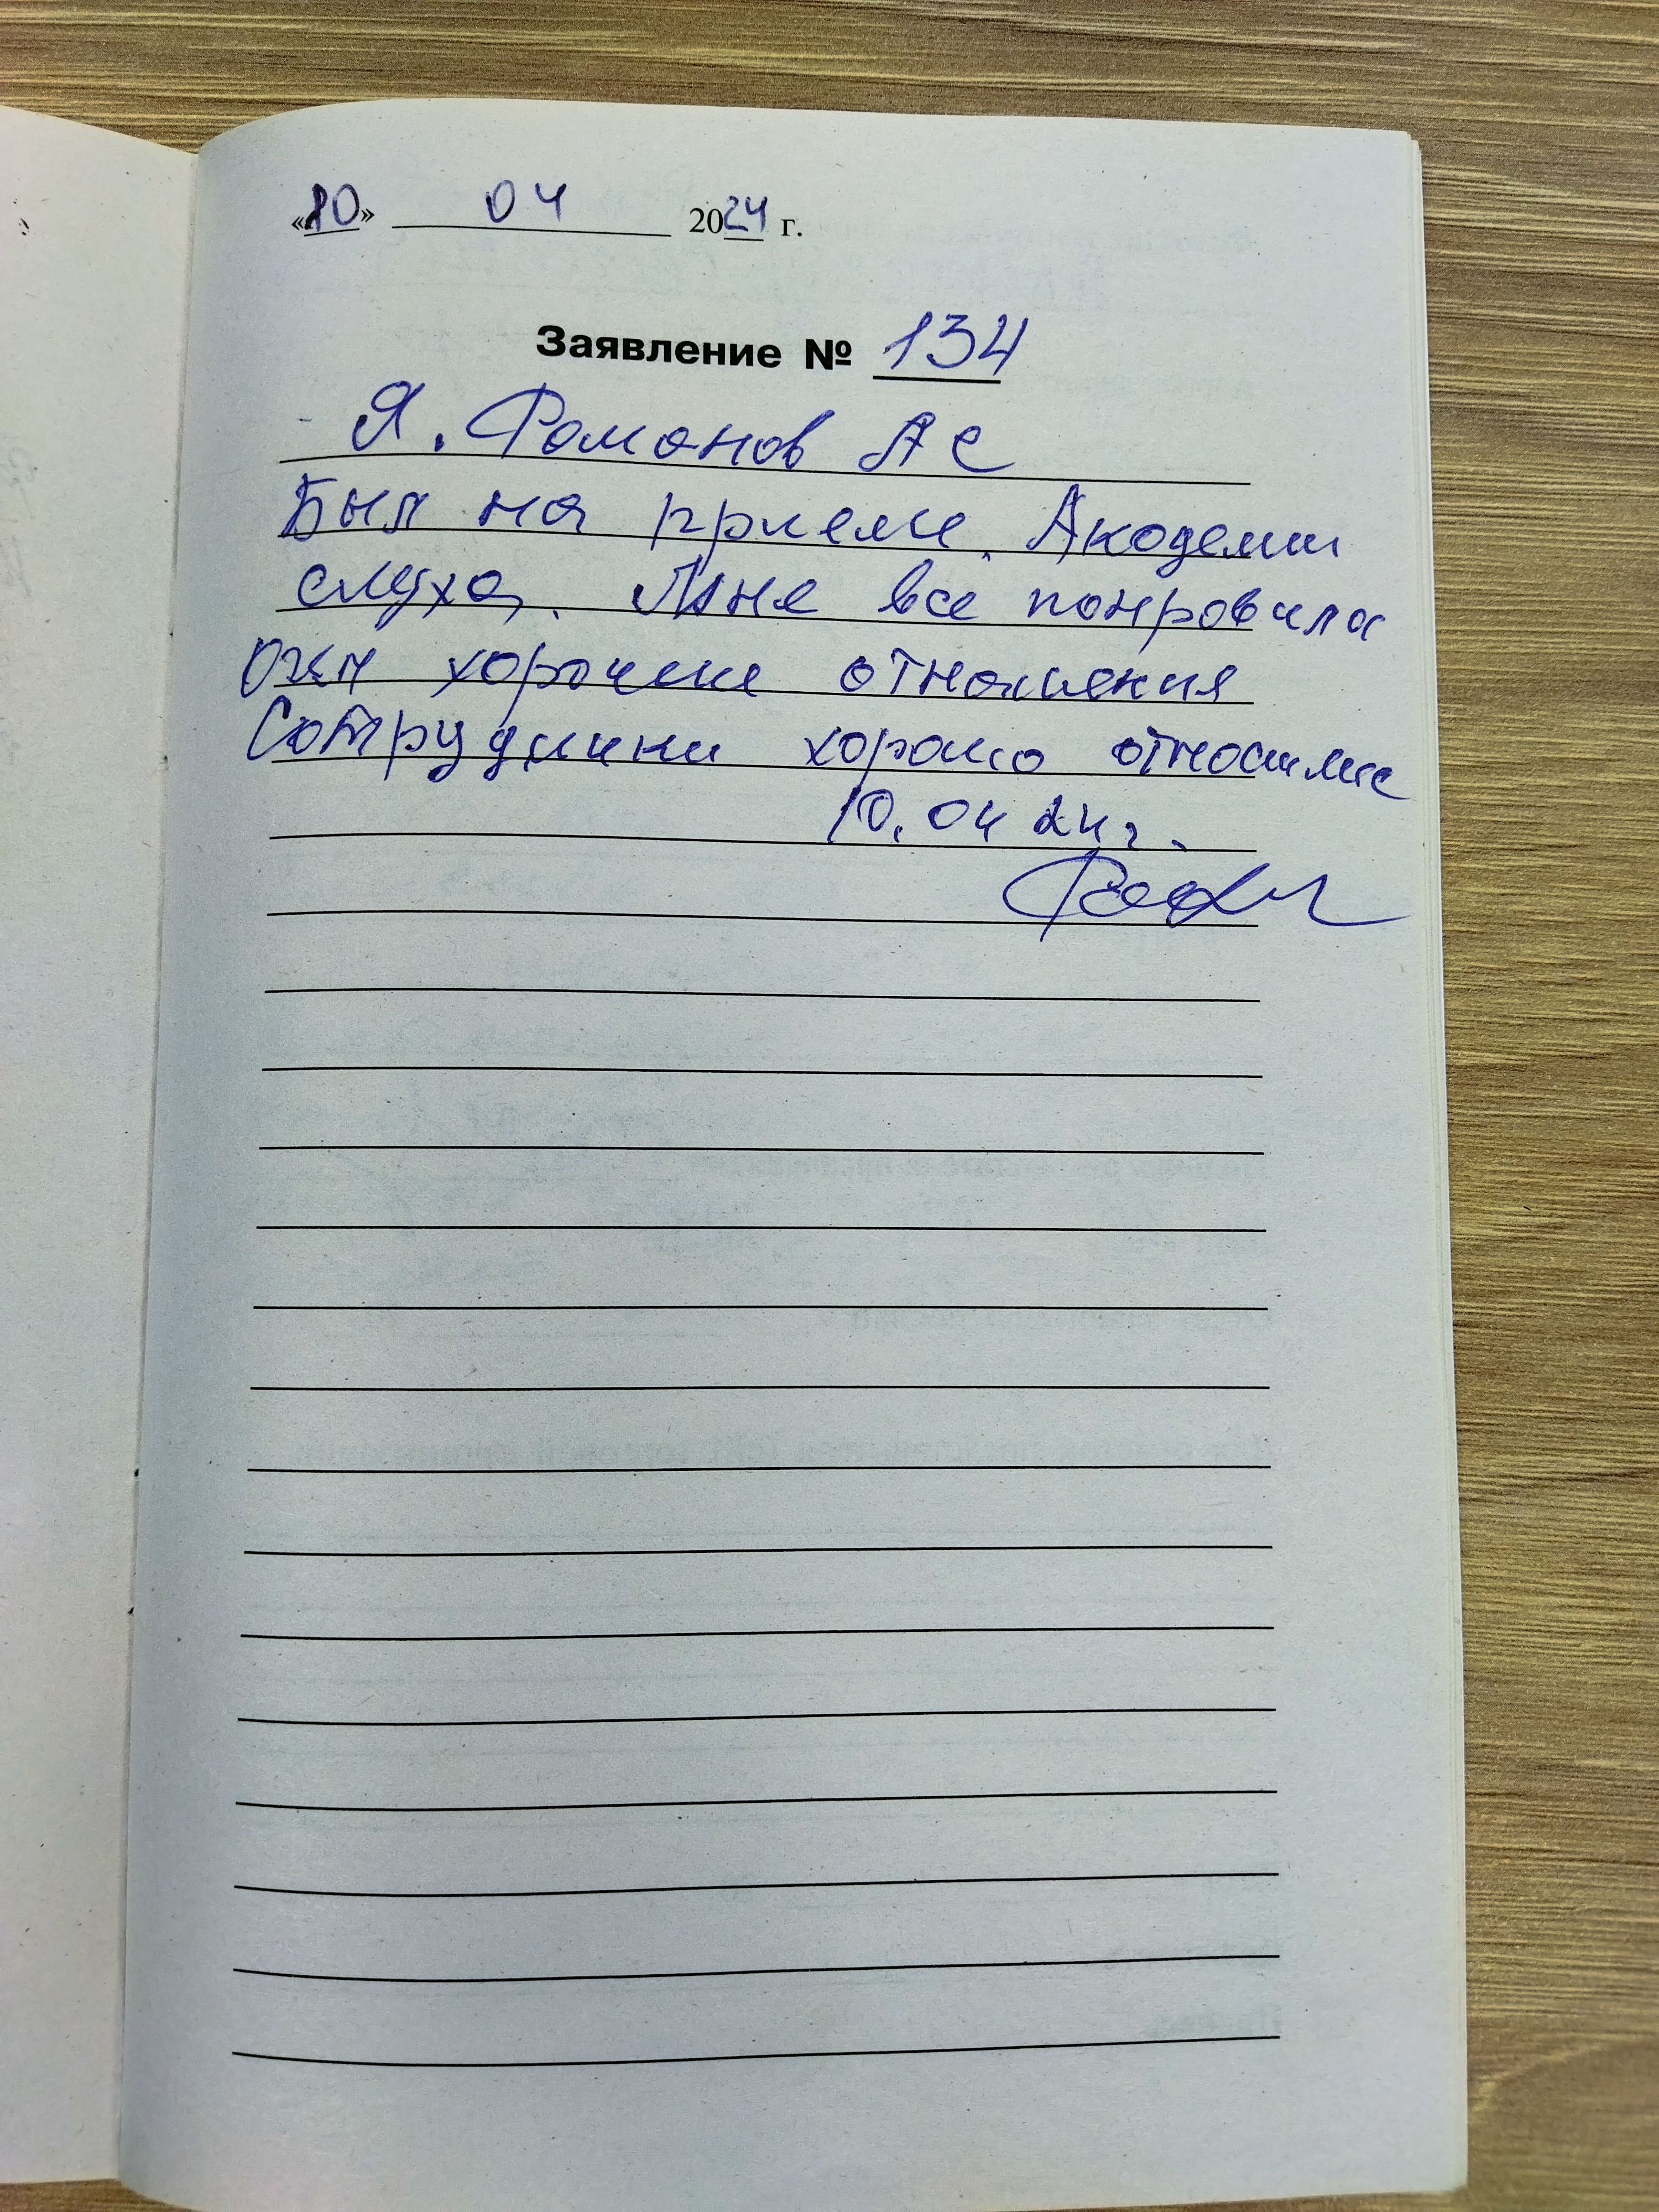 «10» 04 2024 г.
Заявление № 134
Я. Романов А С
Был на приеме. Академии
слуха. Мне все понравила
хорошие отношения
Сотрудники хорошо относиме
10.04 24 г.